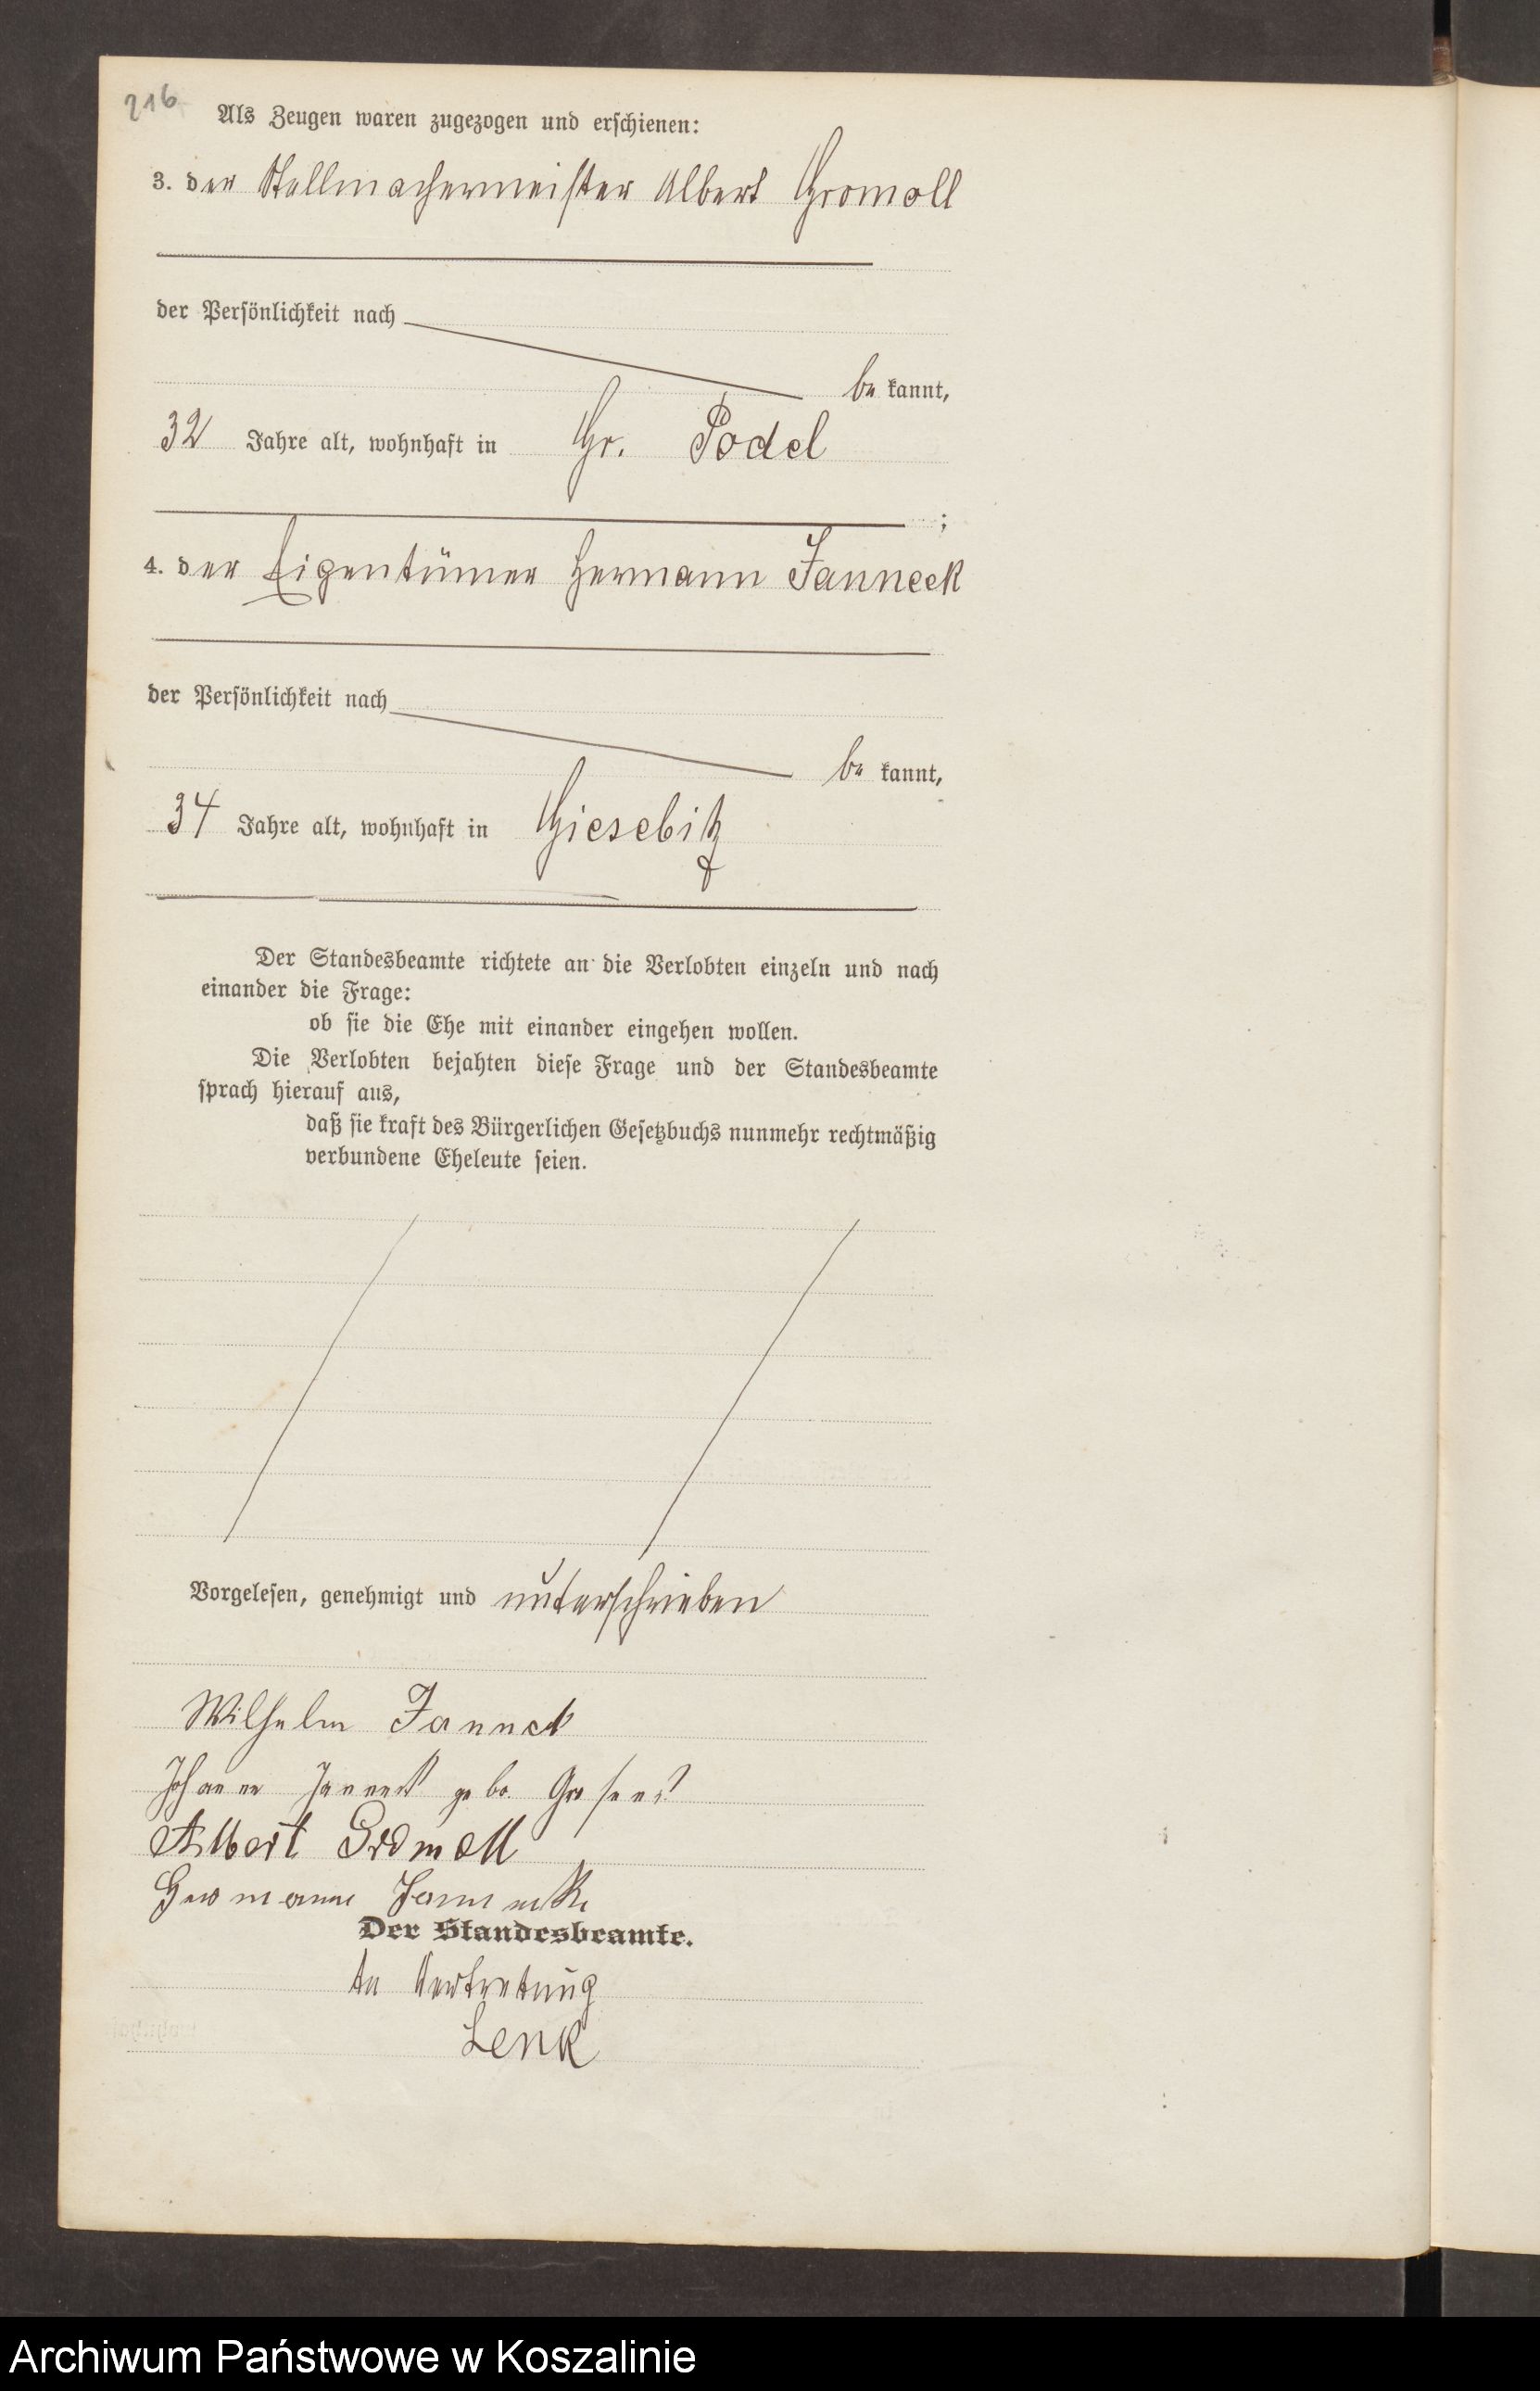 216
Als Zeugen waren zugezogen und erschienen:
3. der Stellmachermeister Albert Gromoll
der Persönlichkeit nach
be kannt,
32 Jahre alt, wohnhaft in Gr. Podel
;
4. der Eigentümer Hermann Janneck
der Persönlichkeit nach
be kannt,
34 Jahre alt, wohnhaft in Giesebitz
Der Standesbeamte richtete an die Verlobten einzeln und nach
einander die Frage:
ob sie die Ehe mit einander eingehen wollen.
Die Verlobten bejahten diese Frage und der Standesbeamte
sprach hierauf aus,
daß sie kraft des Bürgerlichen Gesetzbuchs nunmehr rechtmäßig
verbundene Eheleute seien.
Vorgelesen, genehmigt und unterschrieben
Wilhelm Janneck
Janneck
Albert Gromoll
Hermann Janneck
Der Standesbeamte.
In Vertretung
Lenk
Archiwum Państwowe w Koszalinie